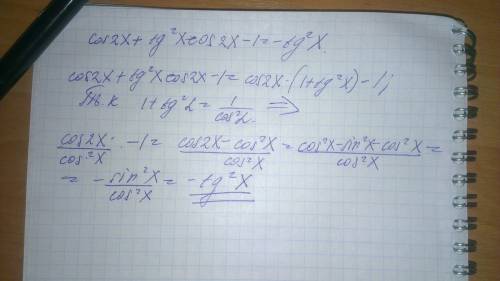 cos2x + tg²x cos2x - 1 = -tg²x.
cos2x + tg²x cos2x - 1 = cos2x·(1+tg²x) - 1;
Т.к 1+tg²α = 1/cos²α. ⇒
cos2x/cos²x - 1 = (cos2x - cos²x)/cos²x = (cos²x - sin²x - cos²x)/cos²x =
= -sin²x/cos²x = -tg²x